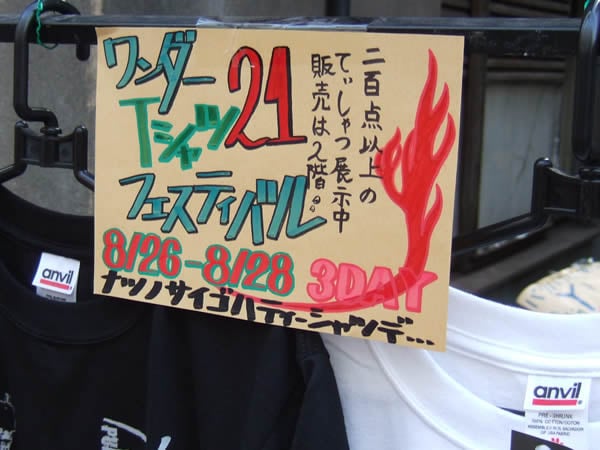 ワンダー
Tシャツ21
フェスティバル
8/26-8/28 3DAY
ナツノサイゴハティーシャツデ...
二百点以上の
てぃしゃつ展示中
販売は2階。
anvil
anvil
PRE-SHRUNK
100% COTTON/COTON